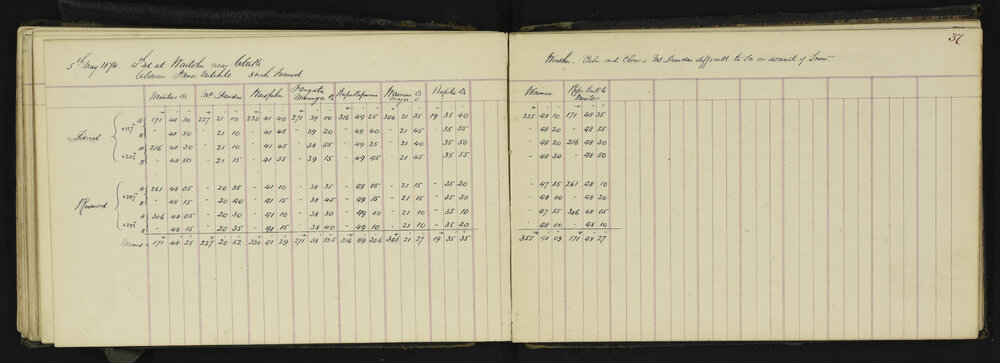 37
5th May 1874. 4th Set at Waitohu near Otaki
Observer James Mitchell 8 inch Transit
Weather. Calm and Clear - Mt. Dundas difficult to see on account of Snow.
Mt. Dundas Kapiti △ Waimea
Direct
A 171 48 30 227 21 00 230 41 40 271 39 00 316 49 25 346 21 35 19 35 40 355 48 10 171 48 35
B - 48 50 - 21 10 - 41 45 - 39 20 - 49 40 - 21 45 - 35 55 - 48 20 - 48 55
A 216 48 30 - 21 10 - 41 45 - 38 55 - 49 25 - 21 40 - 35 50 - 48 20 216 48 30
B - 48 50 - 21 15 - 41 55 - 39 15 - 49 45 - 21 45 - 35 55 - 48 30 - 48 50
Reversed
A 261 48 05 - 20 35 - 41 10 - 38 35 - 49 05 - 21 15 - 35 20 - 47 55 261 48 10
B - 48 15 - 20 40 - 41 15 - 38 45 - 49 15 - 21 15 - 35 30 - 48 00 - 48 20
A 306 48 05 - 20 30 - 41 10 - 38 30 - 49 00 - 21 10 - 35 10 - 47 55 306 48 05
B - 48 15 - 20 35 - 41 15 - 38 40 - 49 10 - 21 10 - 35 20 - 48 00 - 48 10
Means = 171 48 25 227 20 52 230 41 29 271 38 316 49 346 21 27 19 35 35 355 48 09 171 48 27